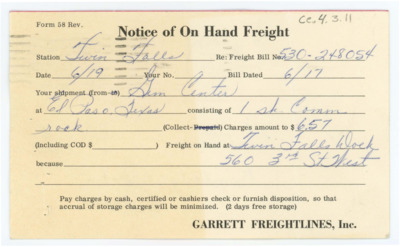 cc. 4. 3. 11
Form 58 Rev.
Notice of On Hand Freight
Station Twin Falls Re: Freight Bill No. 530-248054
Date 6/19 Your No. Bill Dated 6/17
Your shipment (from-to) Gem Center
at El Paso, Texas consisting of 1 sk. Comm
rock (Collect-Prepaid) Charges amount to $ 6.57
(Including COD $ ) Freight on Hand at Twin Falls Dock
because 560 3rd St. West
Pay charges by cash, certified or cashiers check or furnish disposition, so that
accrual of storage charges will be minimized. (2 days free storage)
GARRETT FREIGHTLINES, Inc.